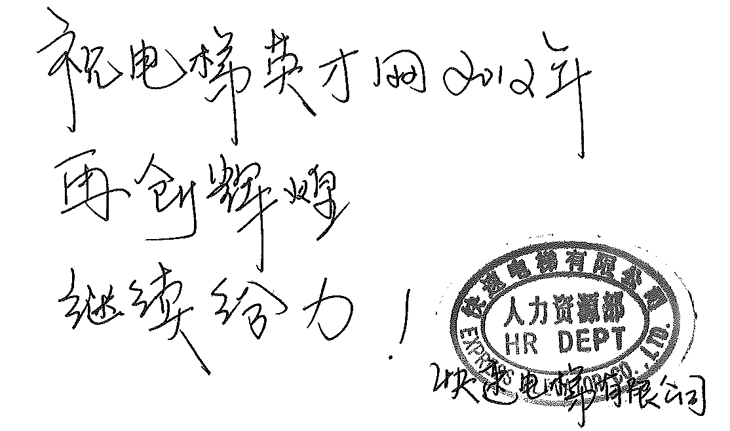 祝电梯英才网2012年
再创辉煌
继续给力!
快速电梯有限公司
人力资源部
HR DEPT
EXPRESS ELEVATOR CO., LTD.
快速电梯有限公司